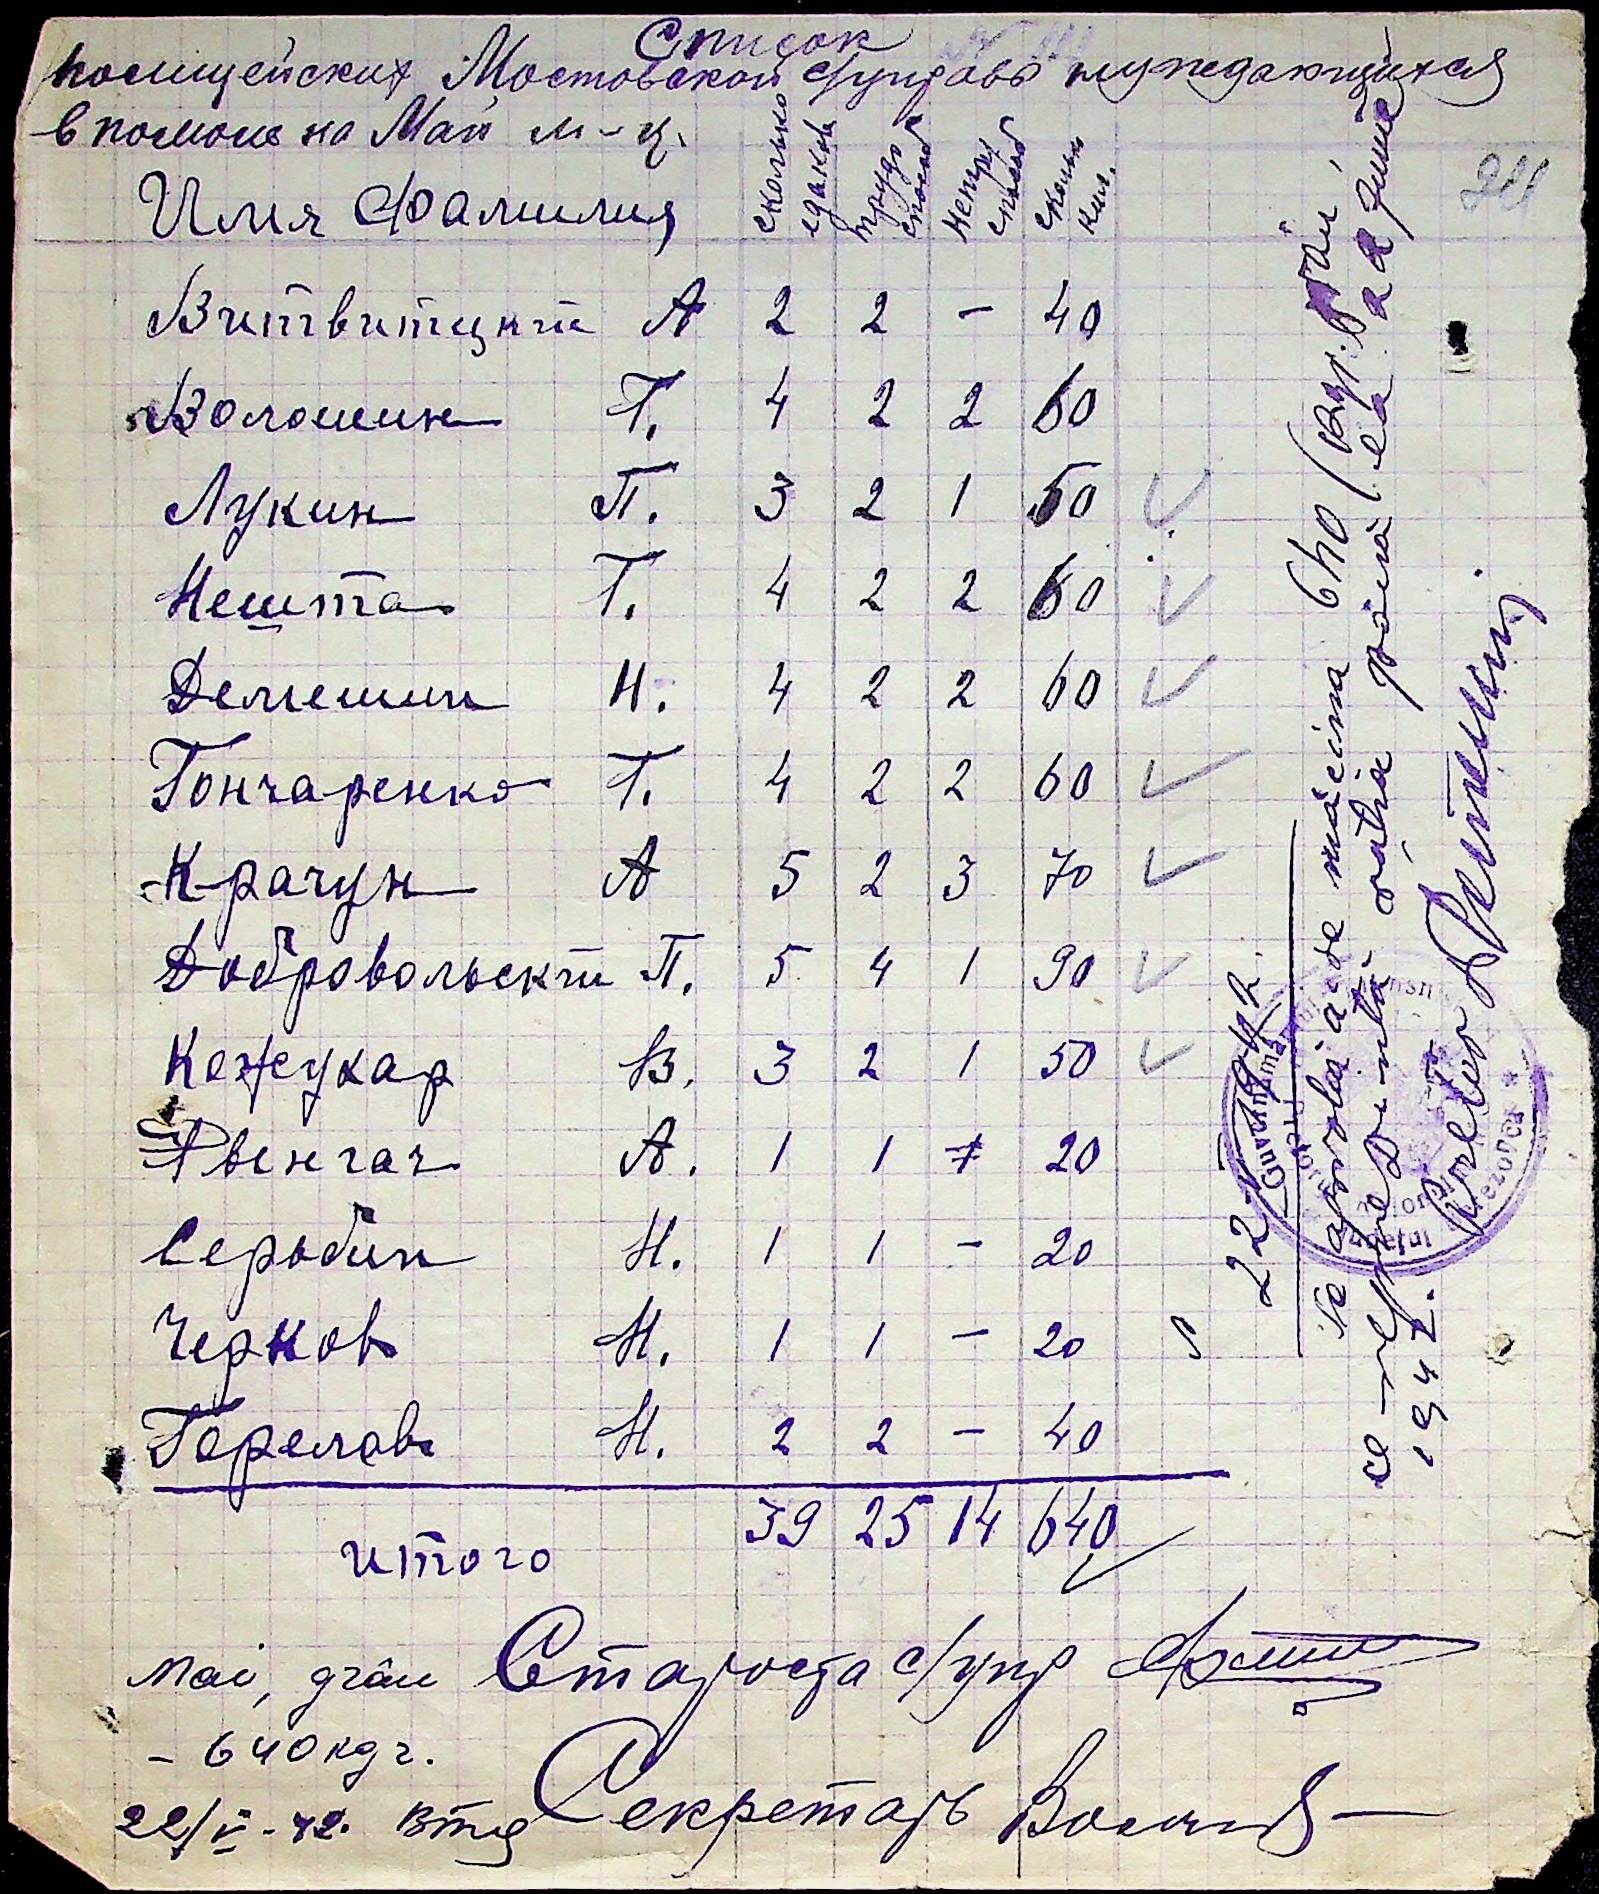 Список
полицейских Мостовской с/управы нуждающихся
в помощь на Май м-ц.
Имя Фамилия сколько едаков трудо способ нетру способ сколько кил.
24
Витвитцкий А 2 2 - 40
Волошин Т. 4 2 2 60
Лукин П. 3 2 1 50
Нешта Т. 4 2 2 60
Демешин Н. 4 2 2 60
Гончаренко Т. 4 2 2 60
Крачун А 5 2 3 70
Добровольский П. 5 4 1 90
Кожухар В. 3 2 1 50
Рвенгач А. 1 1 20
Серобин Н. 1 1 - 20
Чернов Н. 1 1 - 20
Горелов Н. 2 2 - 40
итого 39 25 14 640
Староста с/упр
Mai, grâu
- 640 kgr.
22/V-42.
Секретарь
22 V 1942.
Se aprobă a se măcina 640 (
ce reprezintă rația până la
1942. Pretor
Guvernământul
Județul